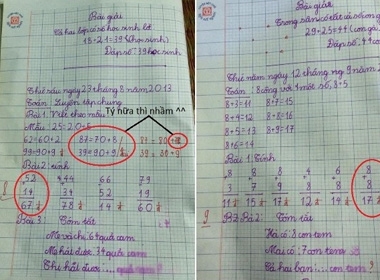 Bài giải
Cả hai lớp có số học sinh là
18+21=39 (học sinh)
Đáp số: 39 học sinh
Thứ sáu ngày 23 tháng 8 năm 2013
Toán: Luyện tập chung
Tý nữa thì nhầm ^^
Bài 1: Viết theo mẫu
Mẫu: 25=20+5
62=60+2 87=70+8 81=80+1
99=90+9 39=90+9 39=80+9
Bài 2: tính
53 44 66 79
14 34 52 19
67 78 14 60
Bài 3: Tóm tắt
Mẹ và chị: 64 quả cam
Mẹ hái được: 34 quả cam
Chị hái được: .... quả cam
Bài giải
Trong sân có tất cả số con g
29+25=44 (con gà
Đáp số: 44 con
Thứ năm ngày 12 tháng 9 năm 2
Toán: 8 cộng với 1 một số, 8+5
8+3=11 8+7=15
8+4=12 8+8=16
8+5=13 8+9=17
8+6=14
Bài 1: Tính
8 8 8 4 6 8
3 7 9 8 8 8
11 15 17 12 14 17
Bài 2: Tóm tắt
Hà có: 8 con tem
Mai có: 7 con tem
Cả hai bạn: ... con tem?